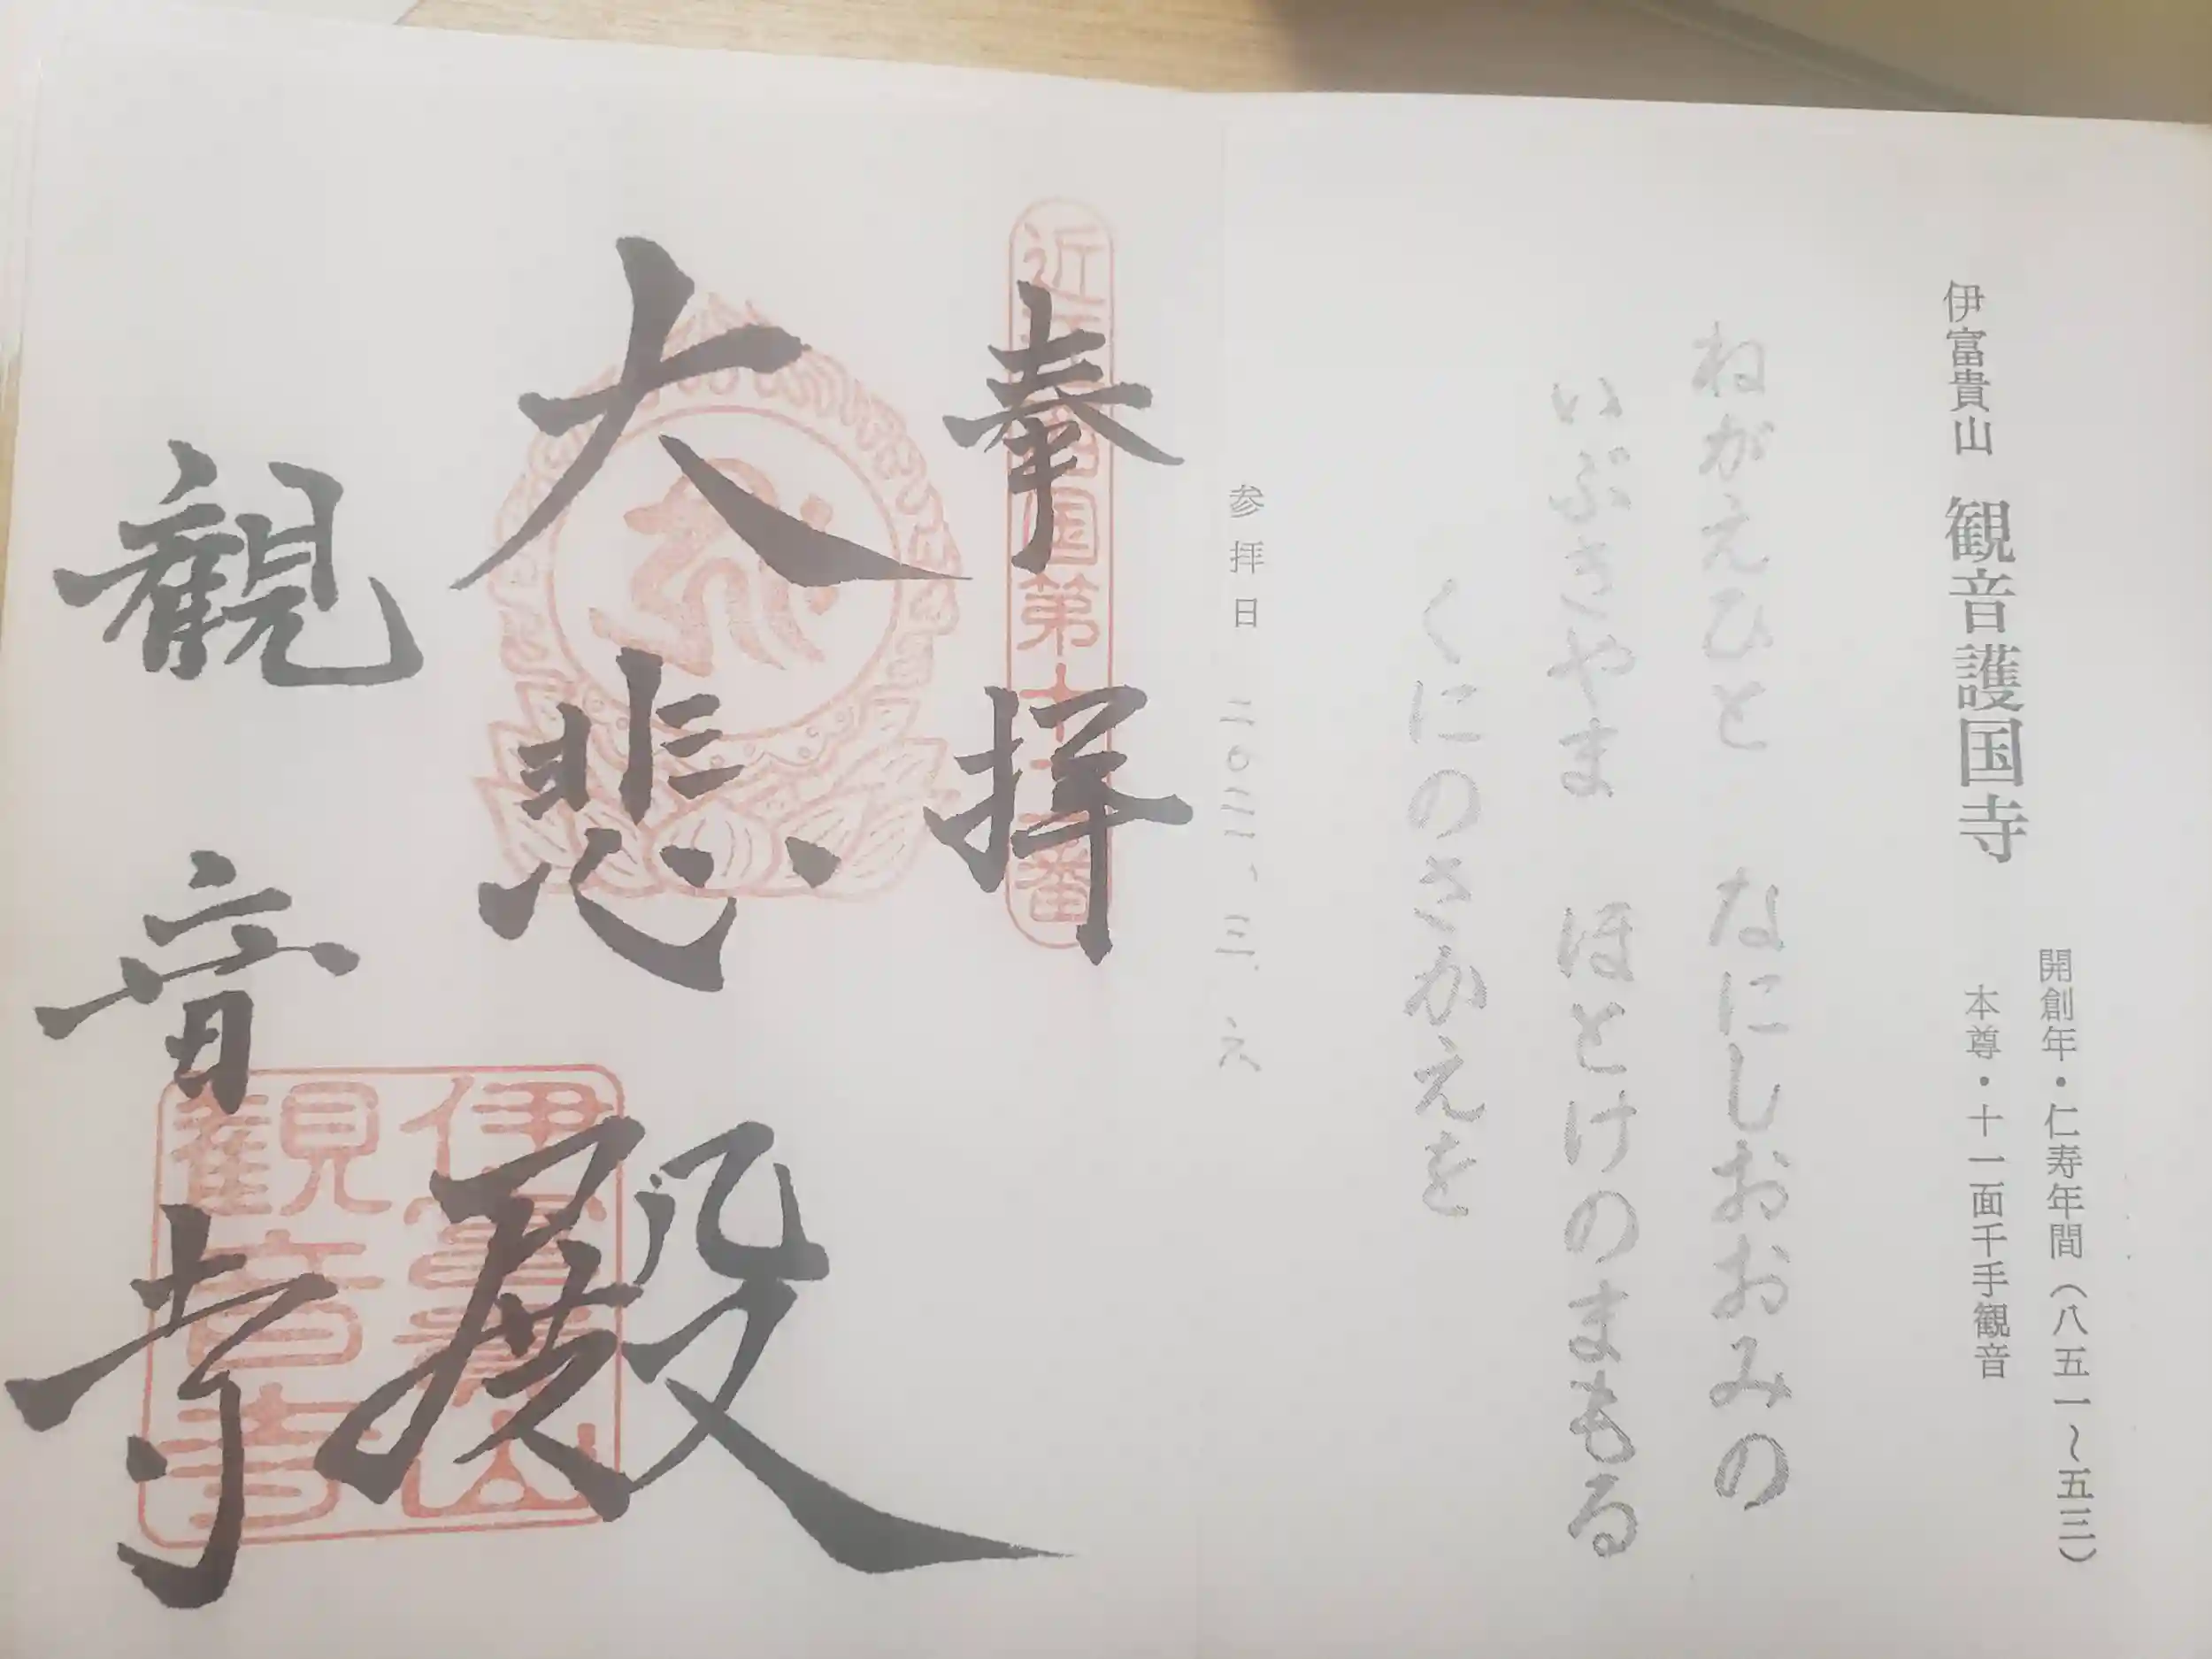 開創年・仁寿年間（八五一～五三）
伊富貴山 観音護国寺
本尊・十一面千手観音
ねがえひと なにしおおみの
いぶきやま ほとけのまもる
くにのさかえを
参拝日 二〇二二、三、六
奉拝
近江西国第十三番
大悲殿
観音寺
伊富貴山
観音寺